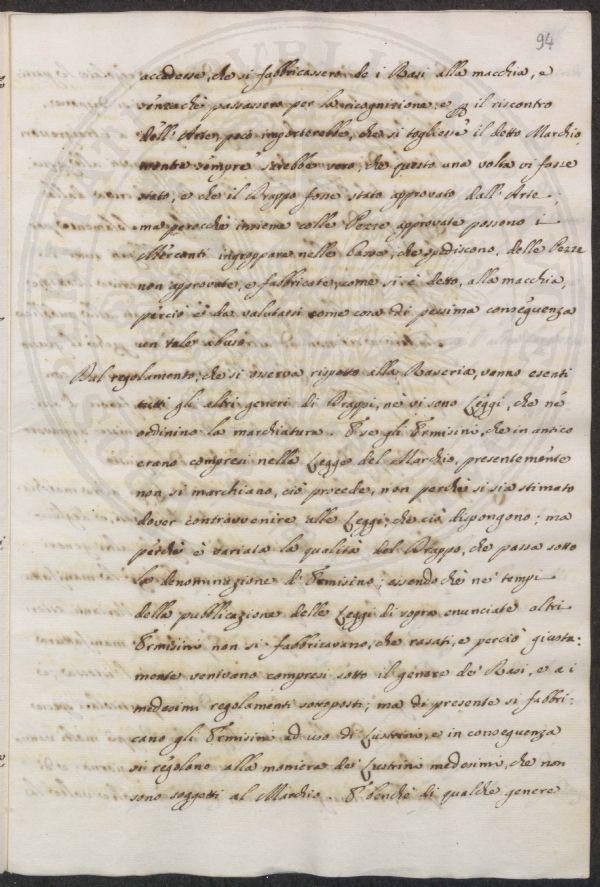 94
accadesse, che si fabbricassero de i Rasi alla macchia, e
senzachè passassero per la ricognizione, e p il riscontro
dell'Arte, poco importerebbe, che si togliesse il detto Marchio,
mentre sempre sarebbe vero, che questo una volta vi fosse
stato, e che il Drappo fosse stato approvato dall'Arte;
ma perocchè insieme colle Pezze approvate possono i
Mercanti ingroppare nelle Casse, che spediscono, delle Pezze
non approvate, e fabbricate, come si è detto, alla macchia,
perciò è da valutarsi come cosa di pessima conseguenza
un tale abuso.
Dal regolamento, che si osserva rispetto alla Raseria, vanno esenti
tutti gli altri generi di Drappi, nè vi sono Leggi, che ne
ordinino la marchiatura. E se gli Ermisini, che in antico
erano compresi nella Legge del Marchio, presentemente
non si marchiano, ciò procede, non perchè si sia stimato
dover contravvenire alle Leggi, che ciò dispongono; ma
perchè è variata la qualità del Drappo, che passa sotto
la denominazione d'Ermisino; essendo chè ne' tempi
della pubblicazione delle Leggi di sopra enunciate altri
Ermisini non si fabbricavano, che rasati, e perciò giusta:
mente venivano compresi sotto il genere de' Rasi, e a i
medesimi regolamenti sottoposti; ma di presente si fabbri:
cano gli Ermisini ad uso di Lustrini, e in conseguenza
si regolano alla maniera de' Lustrini medesimi, che non
sono soggetti al Marchio. E benchè di qualche genere